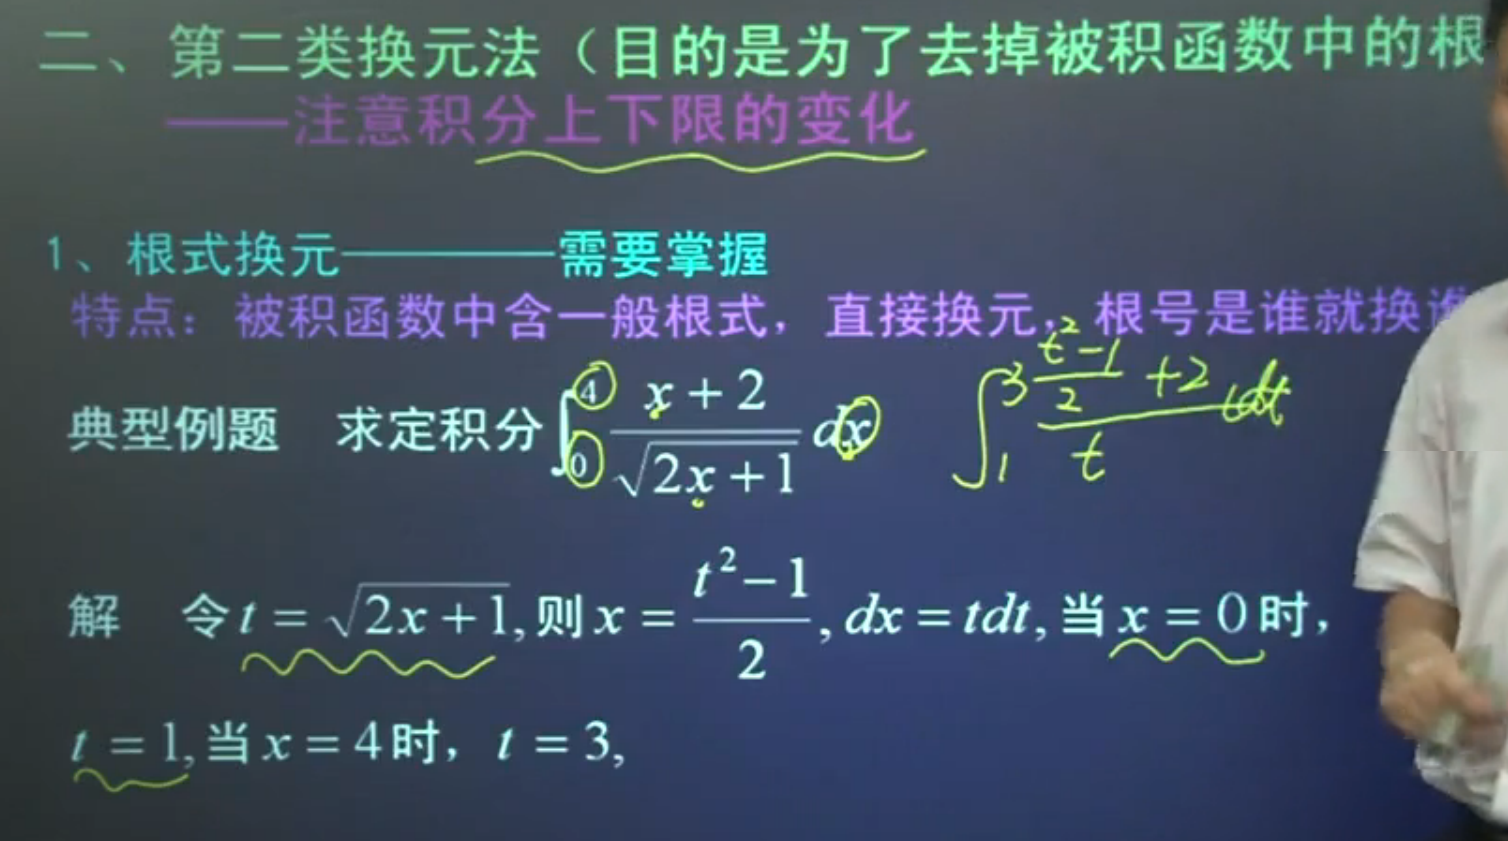 二、第二类换元法（目的是为了去掉被积函数中的根
——注意积分上下限的变化
1、根式换元————需要掌握
特点：被积函数中含一般根式，直接换元，根号是谁就换谁
典型例题 求定积分 \int_0^4 \frac{x+2}{\sqrt{2x+1}} dx \int_1^3 \frac{\frac{t^2-1}{2}+2}{t} tdt
解 令 t = \sqrt{2x+1}, 则 x = \frac{t^2-1}{2}, dx = tdt, 当 x = 0 时，
t = 1, 当 x = 4 时，t = 3,